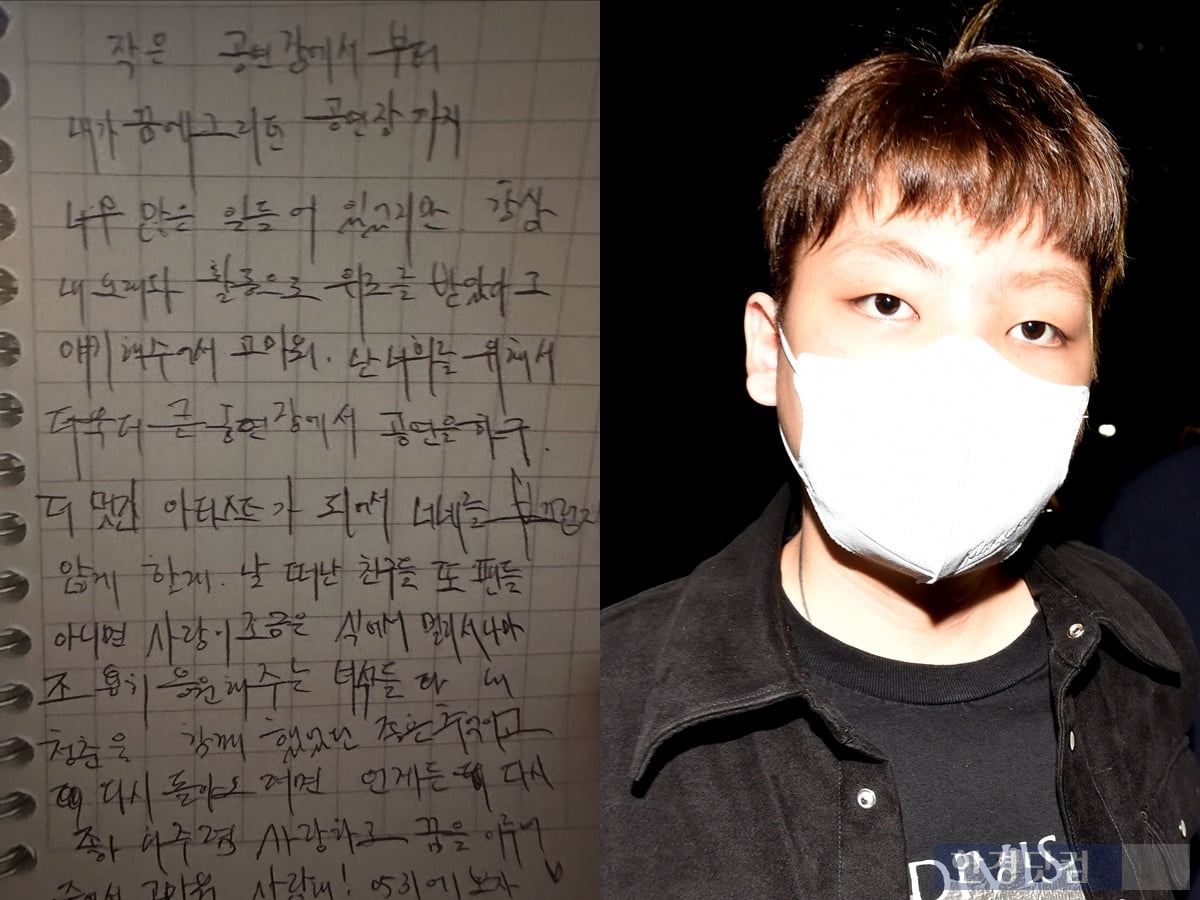 작은 공연장에서 부터
내가 꿈에그리던 공연장 까지
너무 많은 일들이 있었지만 항상
내 노래와 활동으로 위로를 받았다고
얘기해줘서 고마워. 난 너희를 위해서
더욱더 큰 공연장에서 공연을 하구.
더 멋진 아티스트가 되어서 너네를 부끄럽지
않게 할게. 날 떠난 친구들 또 팬들
아니면 사랑이 조금은 식어서 멀리서나마
조용히 응원해주는 녀석들 다 내
청춘을 함께 했었던 좋은 추억이고
다시 돌아오려면 언제든 다시
좋아해주고 사랑하고 꿈을 이루어
줘서 고마워 사랑해! 0531에 보자
DIVIS
한경닷컴